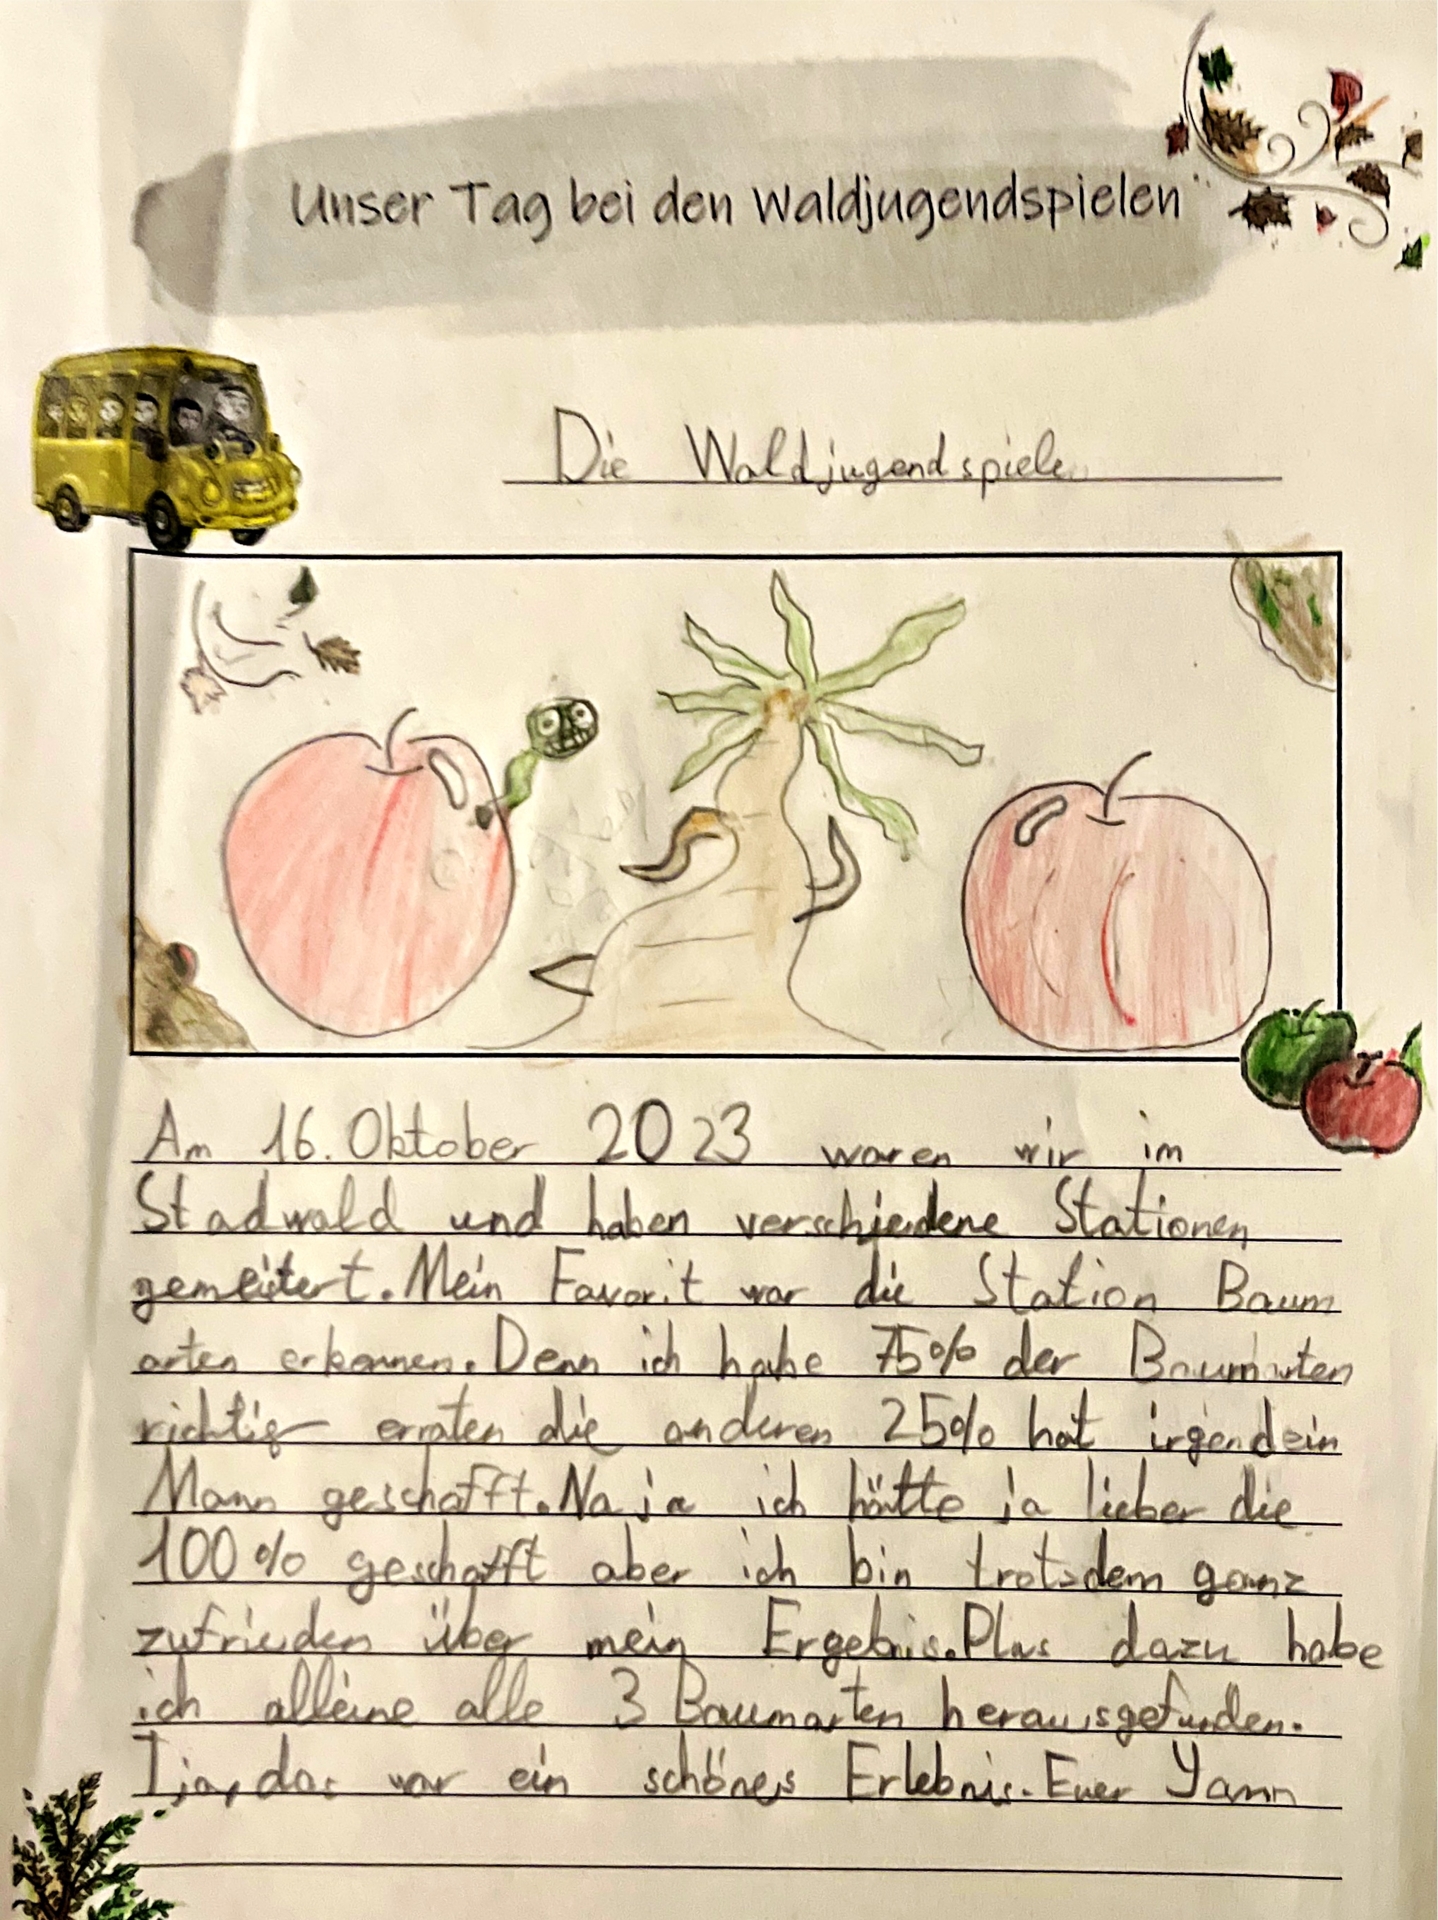 Unser Tag bei den Waldjugendspielen
Die Waldjugendspiele
Am 16. Oktober 2023 waren wir im
Stadwald und haben verschiedene Stationen
gemeistert. Mein Favorit war die Station Baum
arten erkennen. Denn ich habe 75% der Baumarten
richtig erraten die anderen 25% hat irgendein
Mann geschafft. Na ja ich hätte ja lieber die
100% geschafft aber ich bin trotzdem ganz
zufrieden über mein Ergebnis. Plus dazu habe
ich alleine alle 3 Baumarten herausgefunden.
Tja, das war ein schönes Erlebnis. Euer Yann